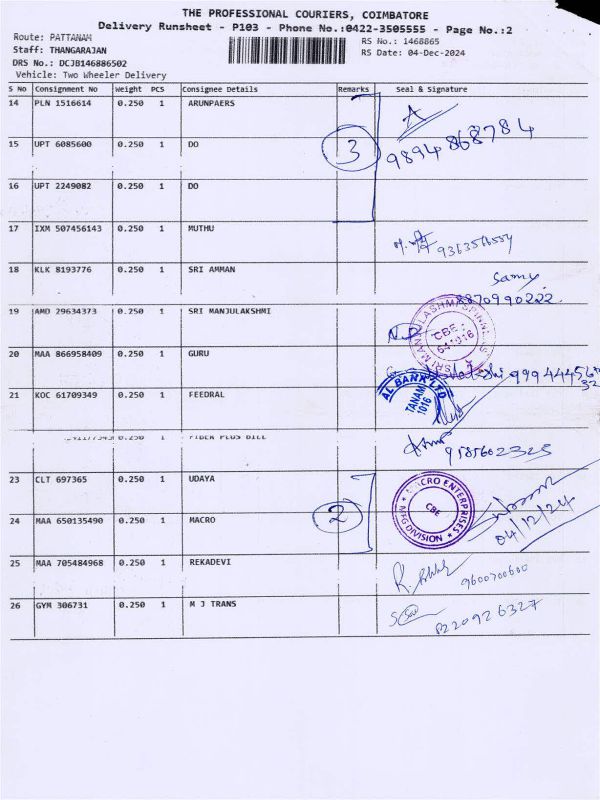 THE PROFESSIONAL COURIERS, COIMBATORE
Delivery Runsheet - P103 - Phone No.:0422-3505555 - Page No.:2
Route: PATTANAM
RS No.: 1468865
Staff: THANGARAJAN
RS Date: 04-Dec-2024
DRS No.: DCJB146886502
Vehicle: Two Wheeler Delivery
S No Consignment No Weight PCS Consignee Details Remarks Seal & Signature
14 PLN 1516614 0.250 1 ARUNPAERS
15 UPT 6085600 0.250 1 DO 3 9894868784
16 UPT 2249082 0.250 1 DO
17 IXM 507456143 0.250 1 MUTHU
18 KLK 8193776 0.250 1 SRI AMMAN Samy
8870990222
19 AMD 29634373 0.250 1 SRI MANJULAKSHMI
CBE
20 MAA 866958409 0.250 1 GURU
21 KOC 61709349 0.250 1 FEEDRAL
AL BANK LTD
TANAM
1016
0.250 1 FIBER PLUS BILL
9585602325
23 CLT 697365 0.250 1 UDAYA
24 MAA 650135490 0.250 1 MACRO 2
MACRO ENTERPRISES
CBE
MFG DIVISION
04/12/24
25 MAA 705484968 0.250 1 REKADEVI
9600700600
26 GYM 306731 0.250 1 M J TRANS
8220926327